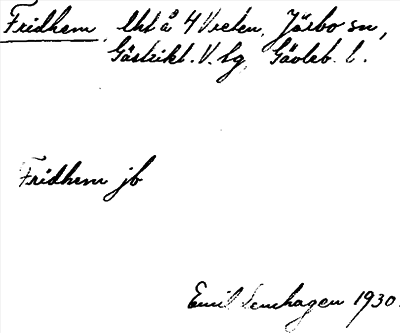 Fridhem, lht å 4 Vreten, Järbo sn,
Gästrikl. V. tg, Gävleb. l.
Fridhem jb
Emil Lenhagen 1930.